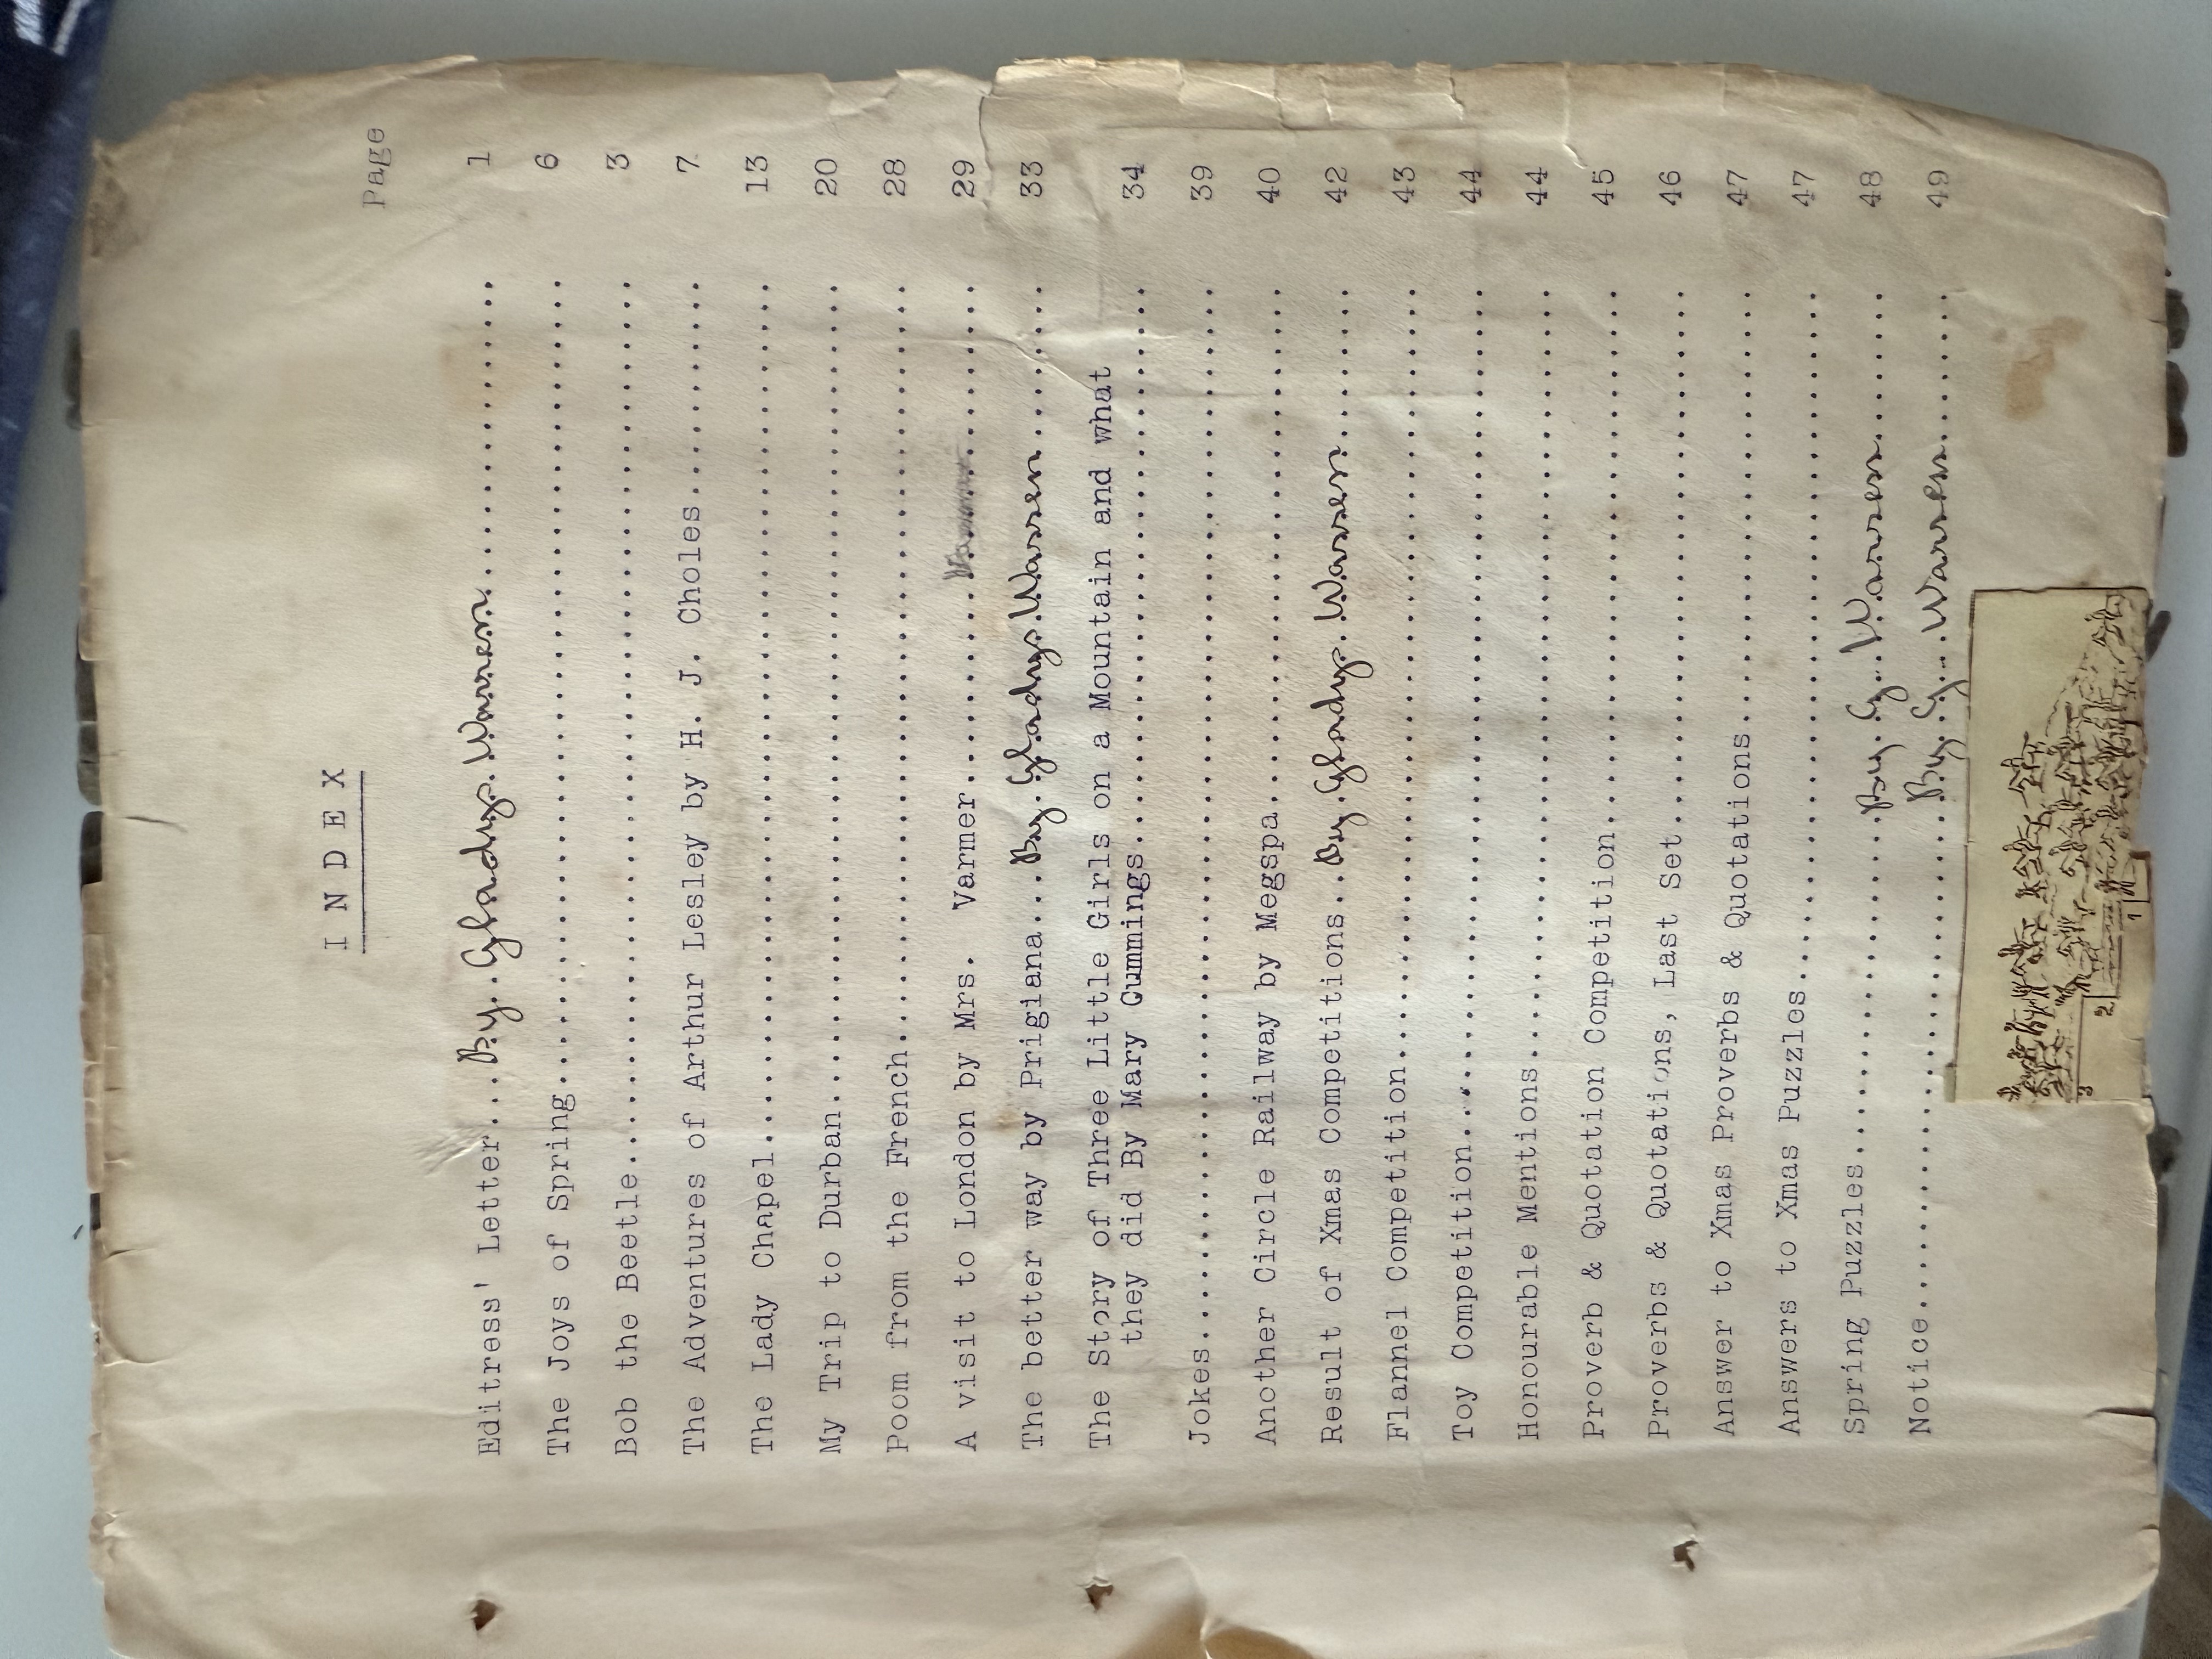 INDEX
Page
Editress' Letter...By Gladys Warren.................... 1
The Joys of Spring.................... 6
Bob the Beetle.................... 3
The Adventures of Arthur Lesley by H. J. Choles.......... 7
The Lady Chapel.................... 13
My Trip to Durban.................... 20
Poom from the French.................... 28
A visit to London by Mrs. Varmer.................... 29
The better way by Prigiana...By Gladys Warren.......... 33
The Story of Three Little Girls on a Mountain and what
they did By Mary Cummings.................... 34
Jokes.................... 39
Another Circle Railway by Megspa.................... 40
Result of Xmas Competitions...By Gladys Warren.......... 42
Flannel Competition.................... 43
Toy Competition.................... 44
Honourable Mentions.................... 44
Proverb & Quotation Competition.................... 45
Proverbs & Quotations, Last Set.................... 46
Answer to Xmas Proverbs & Quotations.................... 47
Answers to Xmas Puzzles.................... 47
Spring Puzzles..........By G. Warren.......... 48
Notice..........By G. Warren.......... 49
3
2
1